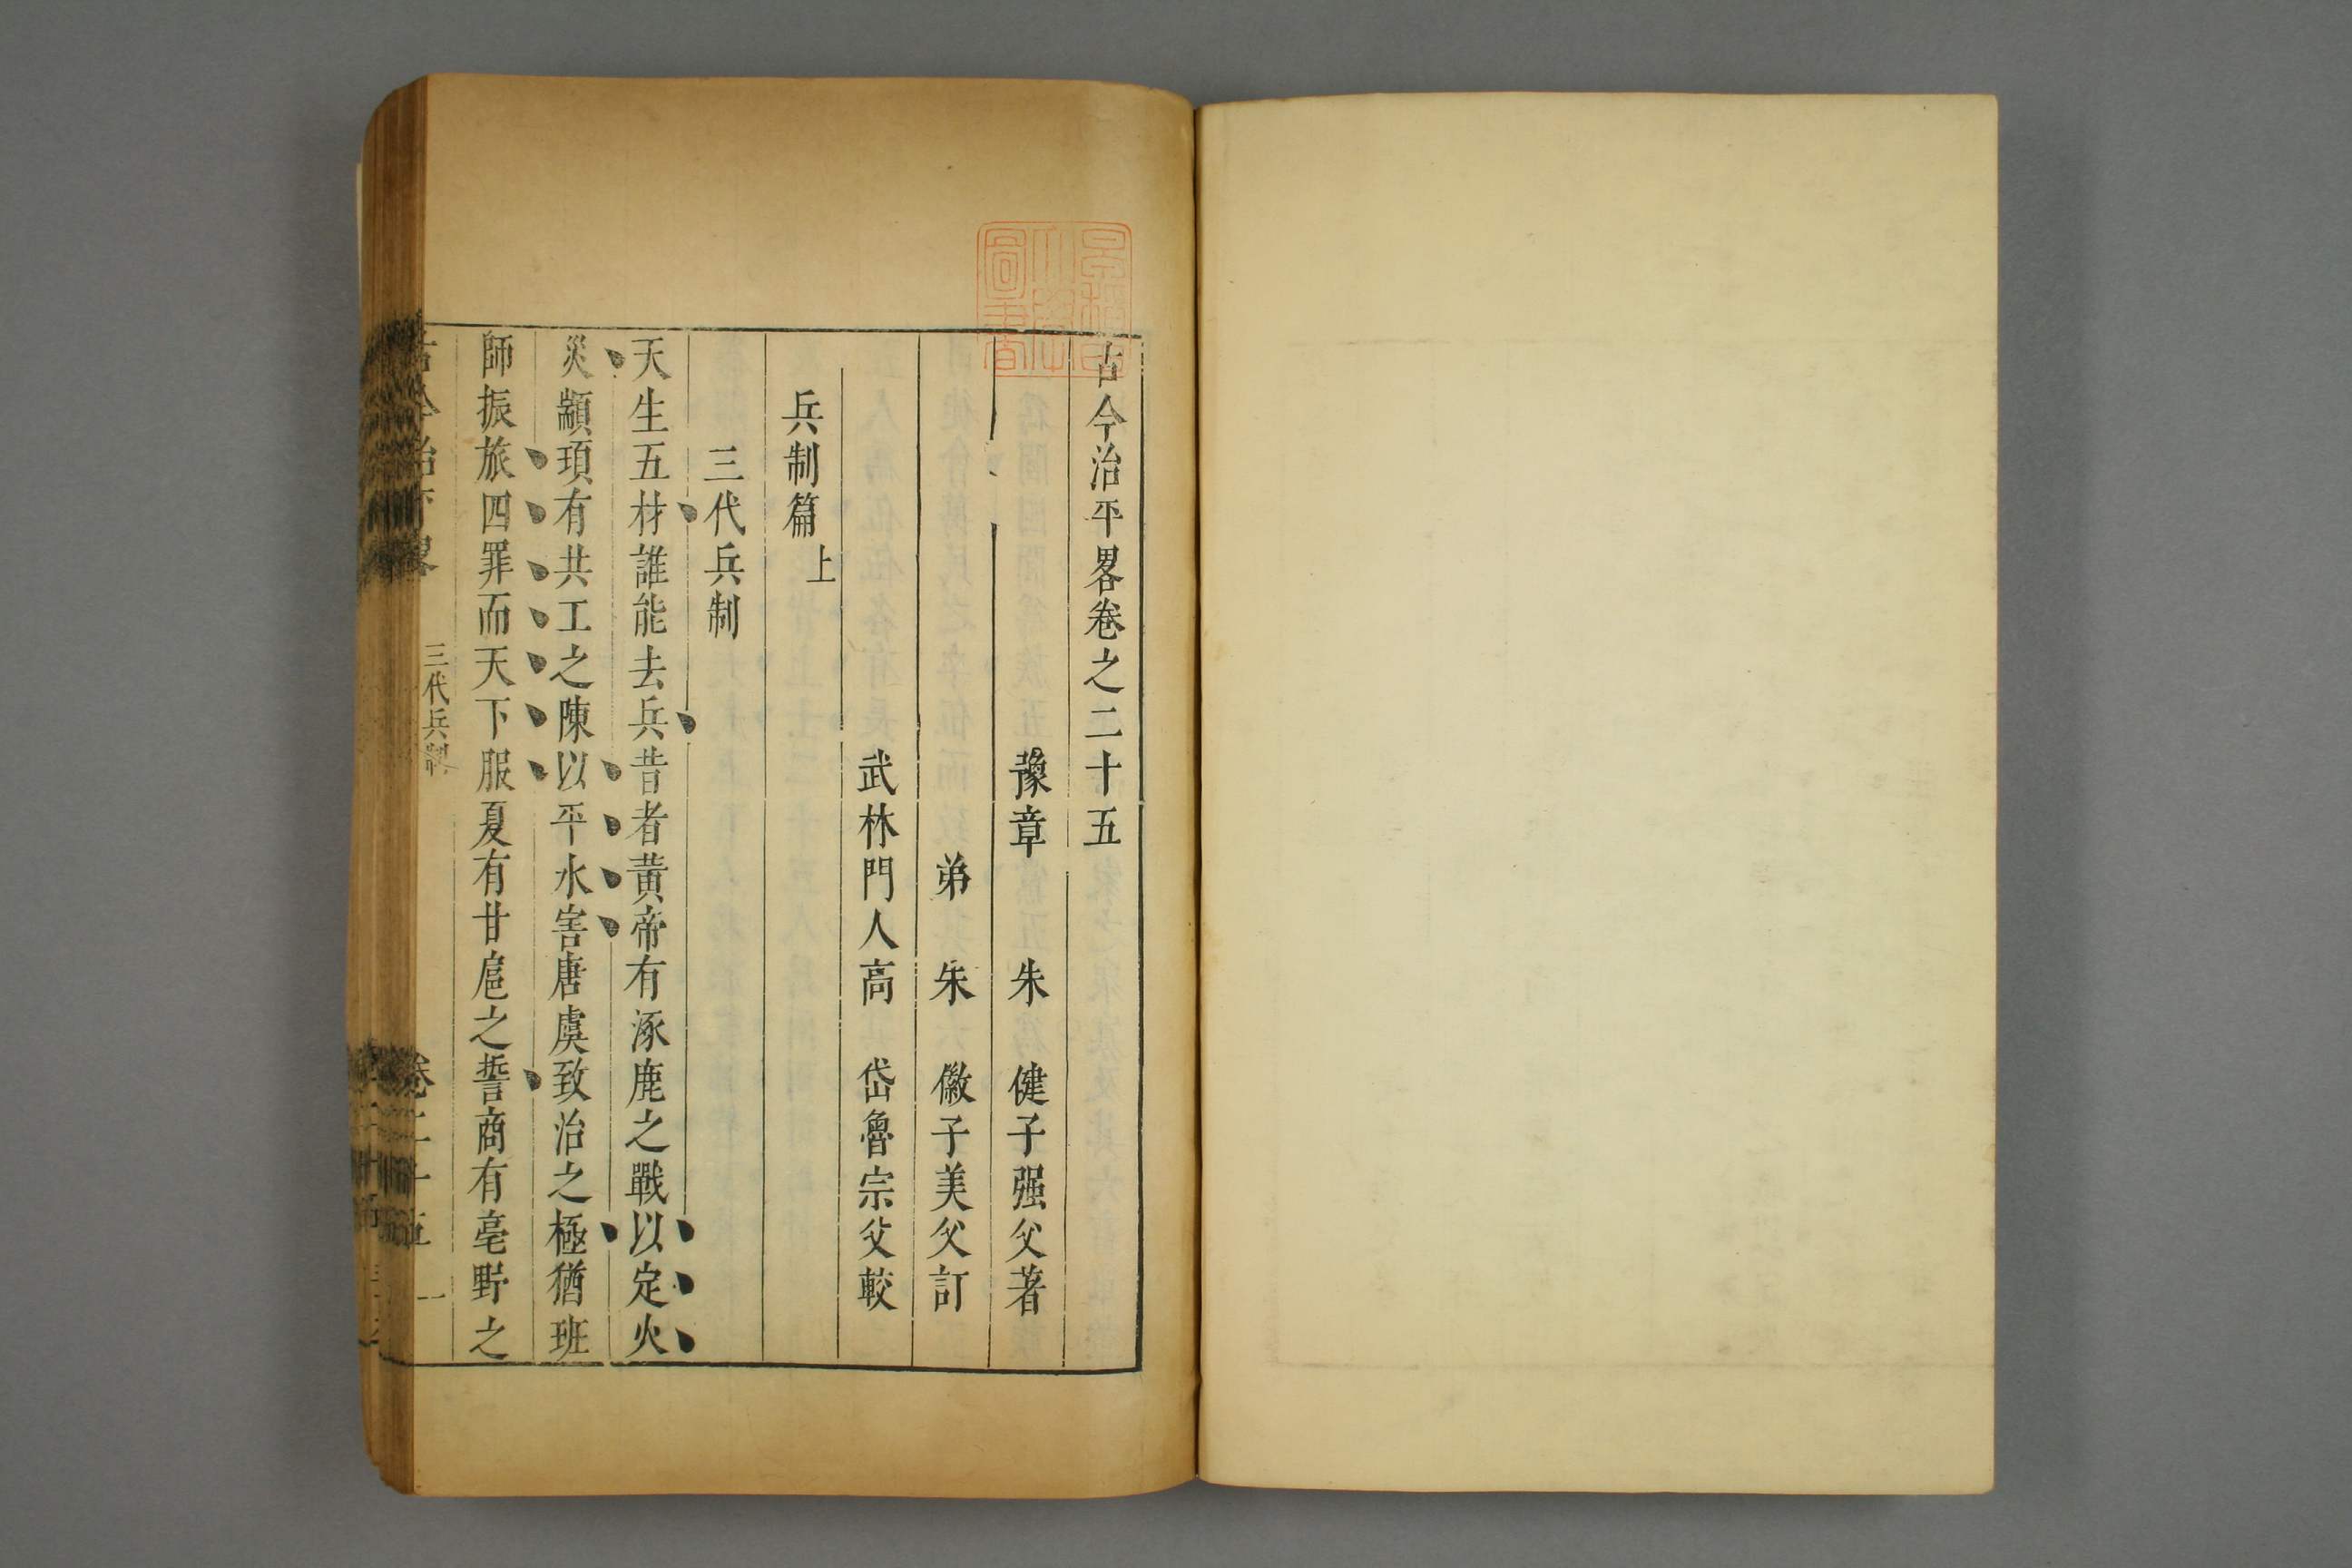 古今治平畧卷之二十五
豫章 朱 健子强父著
弟 朱 徽子美父訂
武林門人高 岱魯宗父較
兵制篇上
三代兵制
天生五材誰能去兵昔者黃帝有涿鹿之戰以定火
災顓頊有共工之陳以平水害唐虞致治之極猶班
師振旅四罪而天下服夏有甘扈之誓商有亳野之
古今治平畧 三代兵制 卷二十五 一